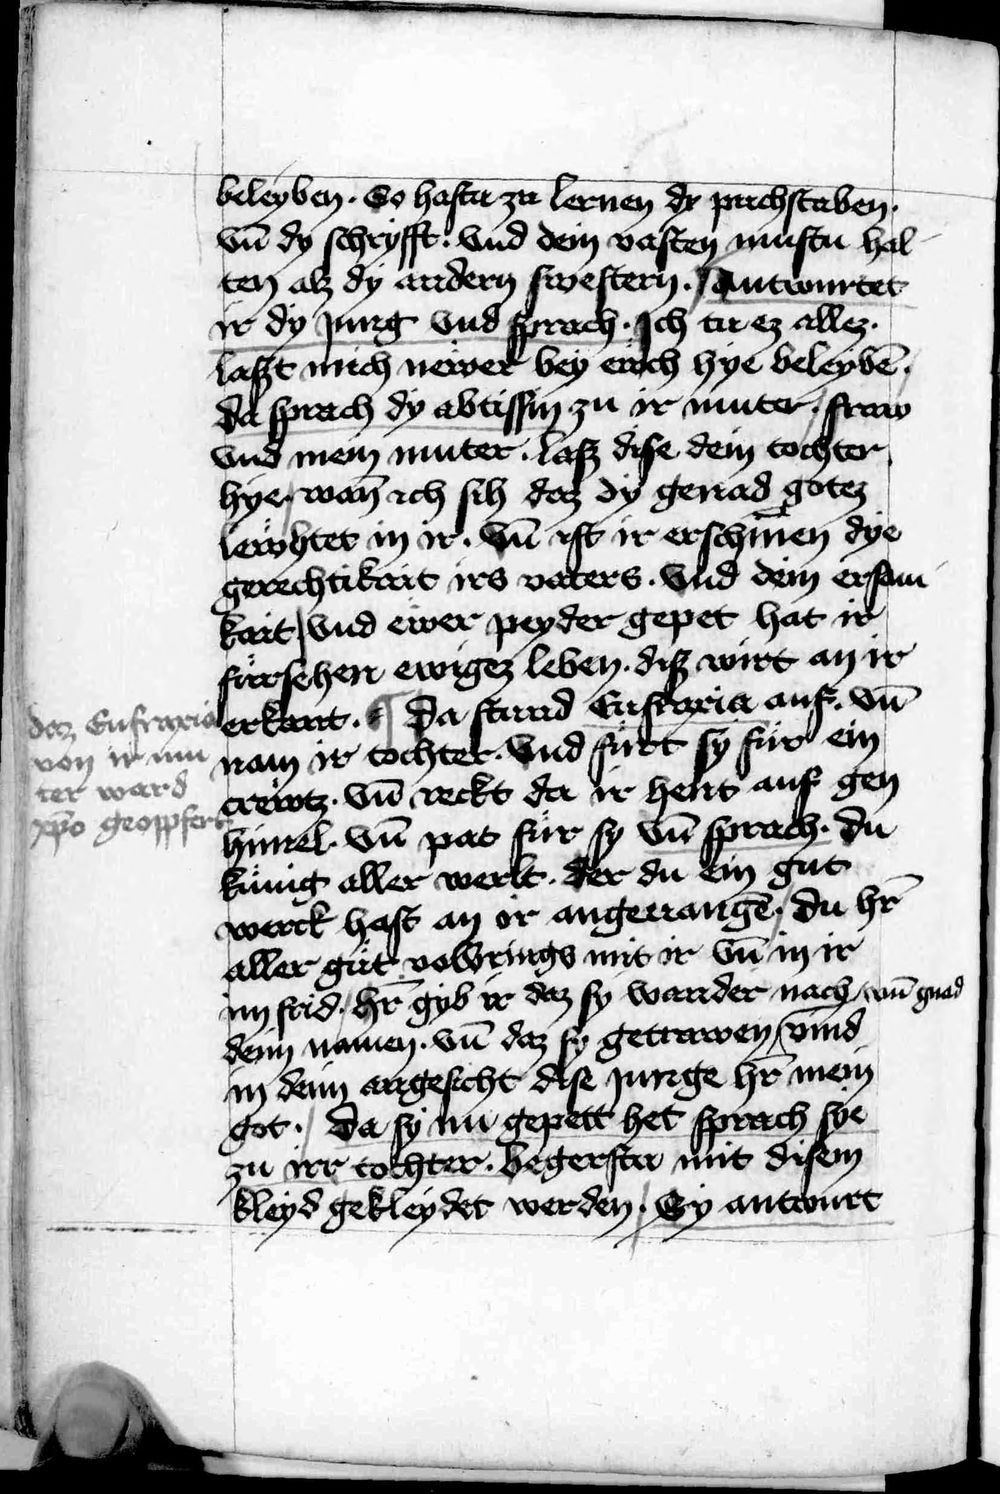 beleyben. So hastu zu lernen dy puchstaben.
vn̄ dy schryfft. vnd dein vasten mustu hal
ten alz dy andern swestern. Antwurtet
ir dy jung vnd sprach. Ich tu ez allez.
laszt mich newer bey euch hye beleybē.
da sprach dy abtissin zu ir muter. fraw
vnd mein muter. lasz dise dein tochter
hye. wan̄ ich sih daz dy genad gotez
lewhtet in ir. vn̄ ist ir erschinen dye
gerechtikait irs vaters. vnd dein ersam
kait vnd ewer peyder gepet hat ir
fürsehen ewigez leben. disz wirt an ir
erkant. ¶ Da stund Eufraxia auf. vn̄
nam ir tochter. vnd fürt sy für ein
crewtz. vn̄ reckt da ir hent auf gen
himel. vn̄ pat für sy vn̄ sprach. du
künig aller werlt. der du ein gut
werck hast an ir angeuangē. du hr̄
aller güt volbrings mit ir vn̄ in ir
im frid. hr̄ gyb ir daz sy wander nach
deim namen. vn̄ daz sy getrawen vn̄ gnad vind
in deim angesicht dise junge hr̄ mein
got. Da sy nu gepett het sprach sye
zu irr tochter. begerstu mit disem
kleyd gekleydet werden. Sy antwurt
daz Eufraxia
von ir mu
ter ward
xp̄o geopfert